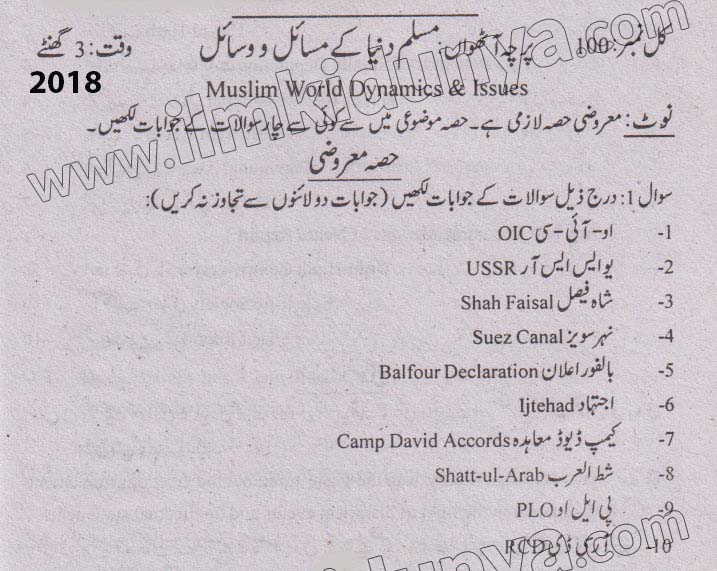 کل نمبر: 100 پرچہ آٹھواں: مسلم دنیا کے مسائل و وسائل وقت: 3 گھنٹے
2018
Muslim World Dynamics & Issues
نوٹ: معروضی حصہ لازمی ہے۔ حصہ موضوعی میں سے کوئی سے چار سوالات کے جوابات لکھیں۔
حصہ معروضی
سوال 1: درج ذیل سوالات کے جوابات لکھیں (جوابات دو لائنوں سے تجاوز نہ کریں):
1- او-آئی-سی OIC
2- یو ایس ایس آر USSR
3- شاہ فیصل Shah Faisal
4- نہر سویز Suez Canal
5- بالفور اعلان Balfour Declaration
6- اجتہاد Ijtehad
7- کیمپ ڈیوڈ معاہدہ Camp David Accords
8- شط العرب Shatt-ul-Arab
9- پی ایل او PLO
10- آر سی ڈی RCD
www.ilmkidunya.com